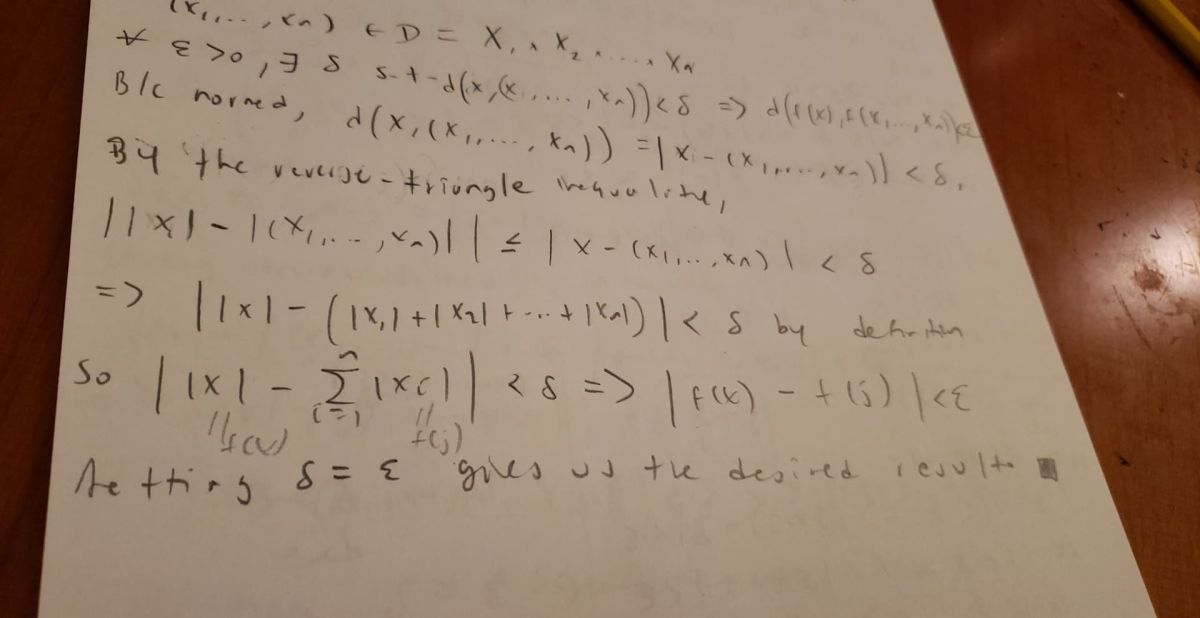 (x₁,...,xₙ) ∈ D = X₁ × X₂ × .... × Xₙ
∀ ε>0, ∃ δ s.t. d(x,(x₁,....,xₙ))<δ => d(f(x),f(x₁,...,xₙ))<ε
B/c normed, d(x,(x₁,....,xₙ)) = |x-(x₁,....,xₙ)| < δ.
By the reverse-triangle inequality,
||x|-|(x₁,...,xₙ)|| ≤ |x-(x₁,..,xₙ)| < δ
=> ||x|-(|x₁|+|x₂|+...+|xₙ|)| < δ by definition
So ||x| - ∑ⁿᵢ₌₁ |xᵢ|| < δ => |f(x) - f(j)| < ε
|| f(x) || f(j)
Setting δ = ε gives us the desired result ■